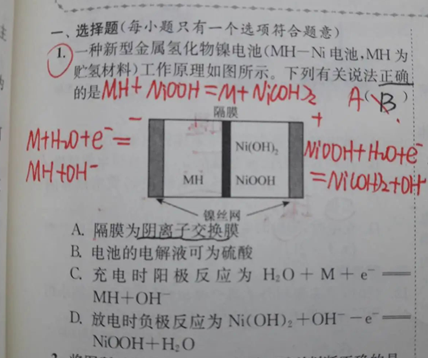 一、选择题(每小题只有一个选项符合题意)
1. 一种新型金属氢化物镍电池(MH—Ni电池,MH为
贮氢材料)工作原理如图所示。下列有关说法正确
的是 MH+NiOOH=M+Ni(OH)₂ A (B)
隔膜
− +
M+H₂O+e⁻=
MH+OH⁻
Ni(OH)₂
MH NiOOH
NiOOH+H₂O+e⁻
=Ni(OH)₂+OH⁻
镍丝网
A. 隔膜为阴离子交换膜
B. 电池的电解液可为硫酸
C. 充电时阳极反应为 H₂O+M+e⁻══
MH+OH⁻
D. 放电时负极反应为 Ni(OH)₂+OH⁻−e⁻══
NiOOH+H₂O